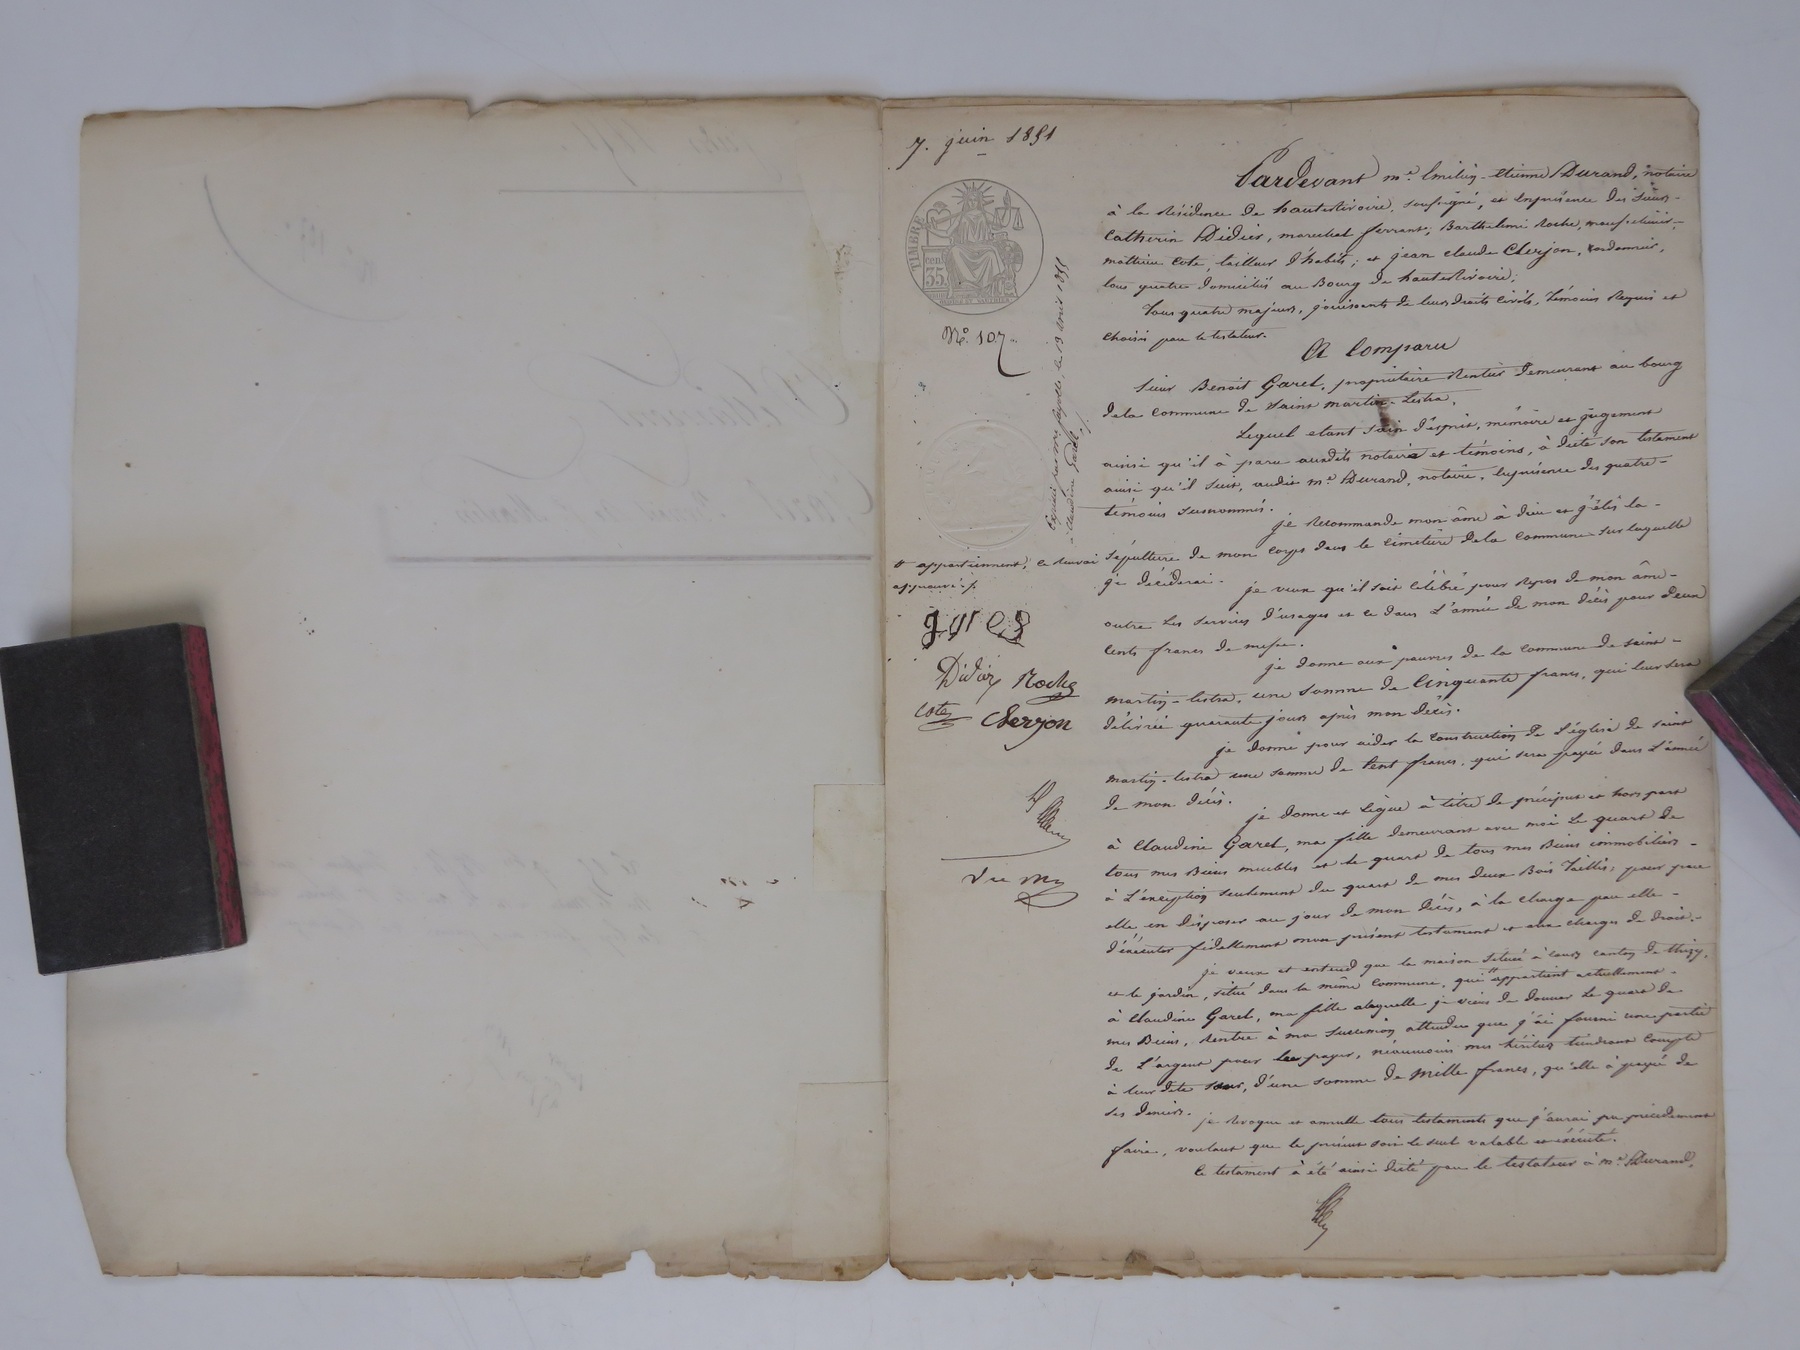 7. juin 1851
TIMBRE
cen.
35
N° 107.
Expédié par me fayolle, le 13 avril 1855
à Claudine Garel ./.
Pardevant me. Emilien-Etienne Durand, notaire
à la Résidence de hauterivoire, soussigné, et En présence des sieurs
Catherin Didier, marechal ferrant; Barthelemi Roche,
mathieu Cote, tailleur d'habits; et jean claude Cherjon, cordonnier,
tous quatre domiciliés au Bourg de hauterivoire;
Tous quatre majeurs, jouissants de leurs droits civils, témoins Requis et
choisis par le testateur.
A Comparu
sieur Benoit Garel, propriétaire Rentier demeurant au bourg
dela Commune de saint martin-Lestra.
Lequel etant sain d'esprit, mémoire et jugement
ainsi qu'il à paru auxdits notaire et témoins, à dicté son testament
ainsi qu'il suit, audit me. Durand, notaire, En présence des quatre-
témoins susnommés.
je Recommande mon âme à dieu et j'élis la-
sépulture de mon corps dans le cimetière dela Commune sur laquelle
je décéderai.
je veux qu'il soit célébré pour Repos de mon âme-
outre Les services d'usages et ce dans L'année de mon décès pour deux
cents francs de messe.
je donne aux pauvres de la commune de saint-
martin-lestra, une somme de Cinquante francs, qui leur sera
délivrée quarante jours après mon décès.
je donne pour aider la construction de l'église de saint
martin-lestra une somme de Cent francs, qui sera payée dans L'année
de mon décès.
je donne et Lègue à titre de préciput et hors part
à Claudine Garel, ma fille demeurant avec moi Le quart de
tous mes Biens meubles et le quart de tous mes Biens immobiliers-
à L'exception seulement du quart de mes deux Bois Taillis, pour par
elle en disposer au jour de mon décès, à la charge par elle-
d'éxécuter fidellement mon présent testament et aux charges de droit.-
je veux et entend que la maison située à Cours canton de thizy,
et le jardin, situé dans la même commune, qui appartient actuellement-
à Claudine Garel, ma fille alaquelle je viens de donner Le quart de
mes Biens, Rentre à ma succession attendu que j'ai fourni une partie
de L'argent pour les payer, néanmoins mes héritiers tiendront compte
à leur dite sœur, d'une somme de Mille francs, qu'elle à payée de
ses deniers.
je Révoque et annulle tous testaments que j'aurai pu précédemment
faire, voulant que le présent soit le seul valable et éxécuté.
Ce testament à été ainsi dicté par le testateur à me. Durand,
appartiennent, ce renvoi
approuvé ./.
garel
Didier Roche
Cote Cherjon